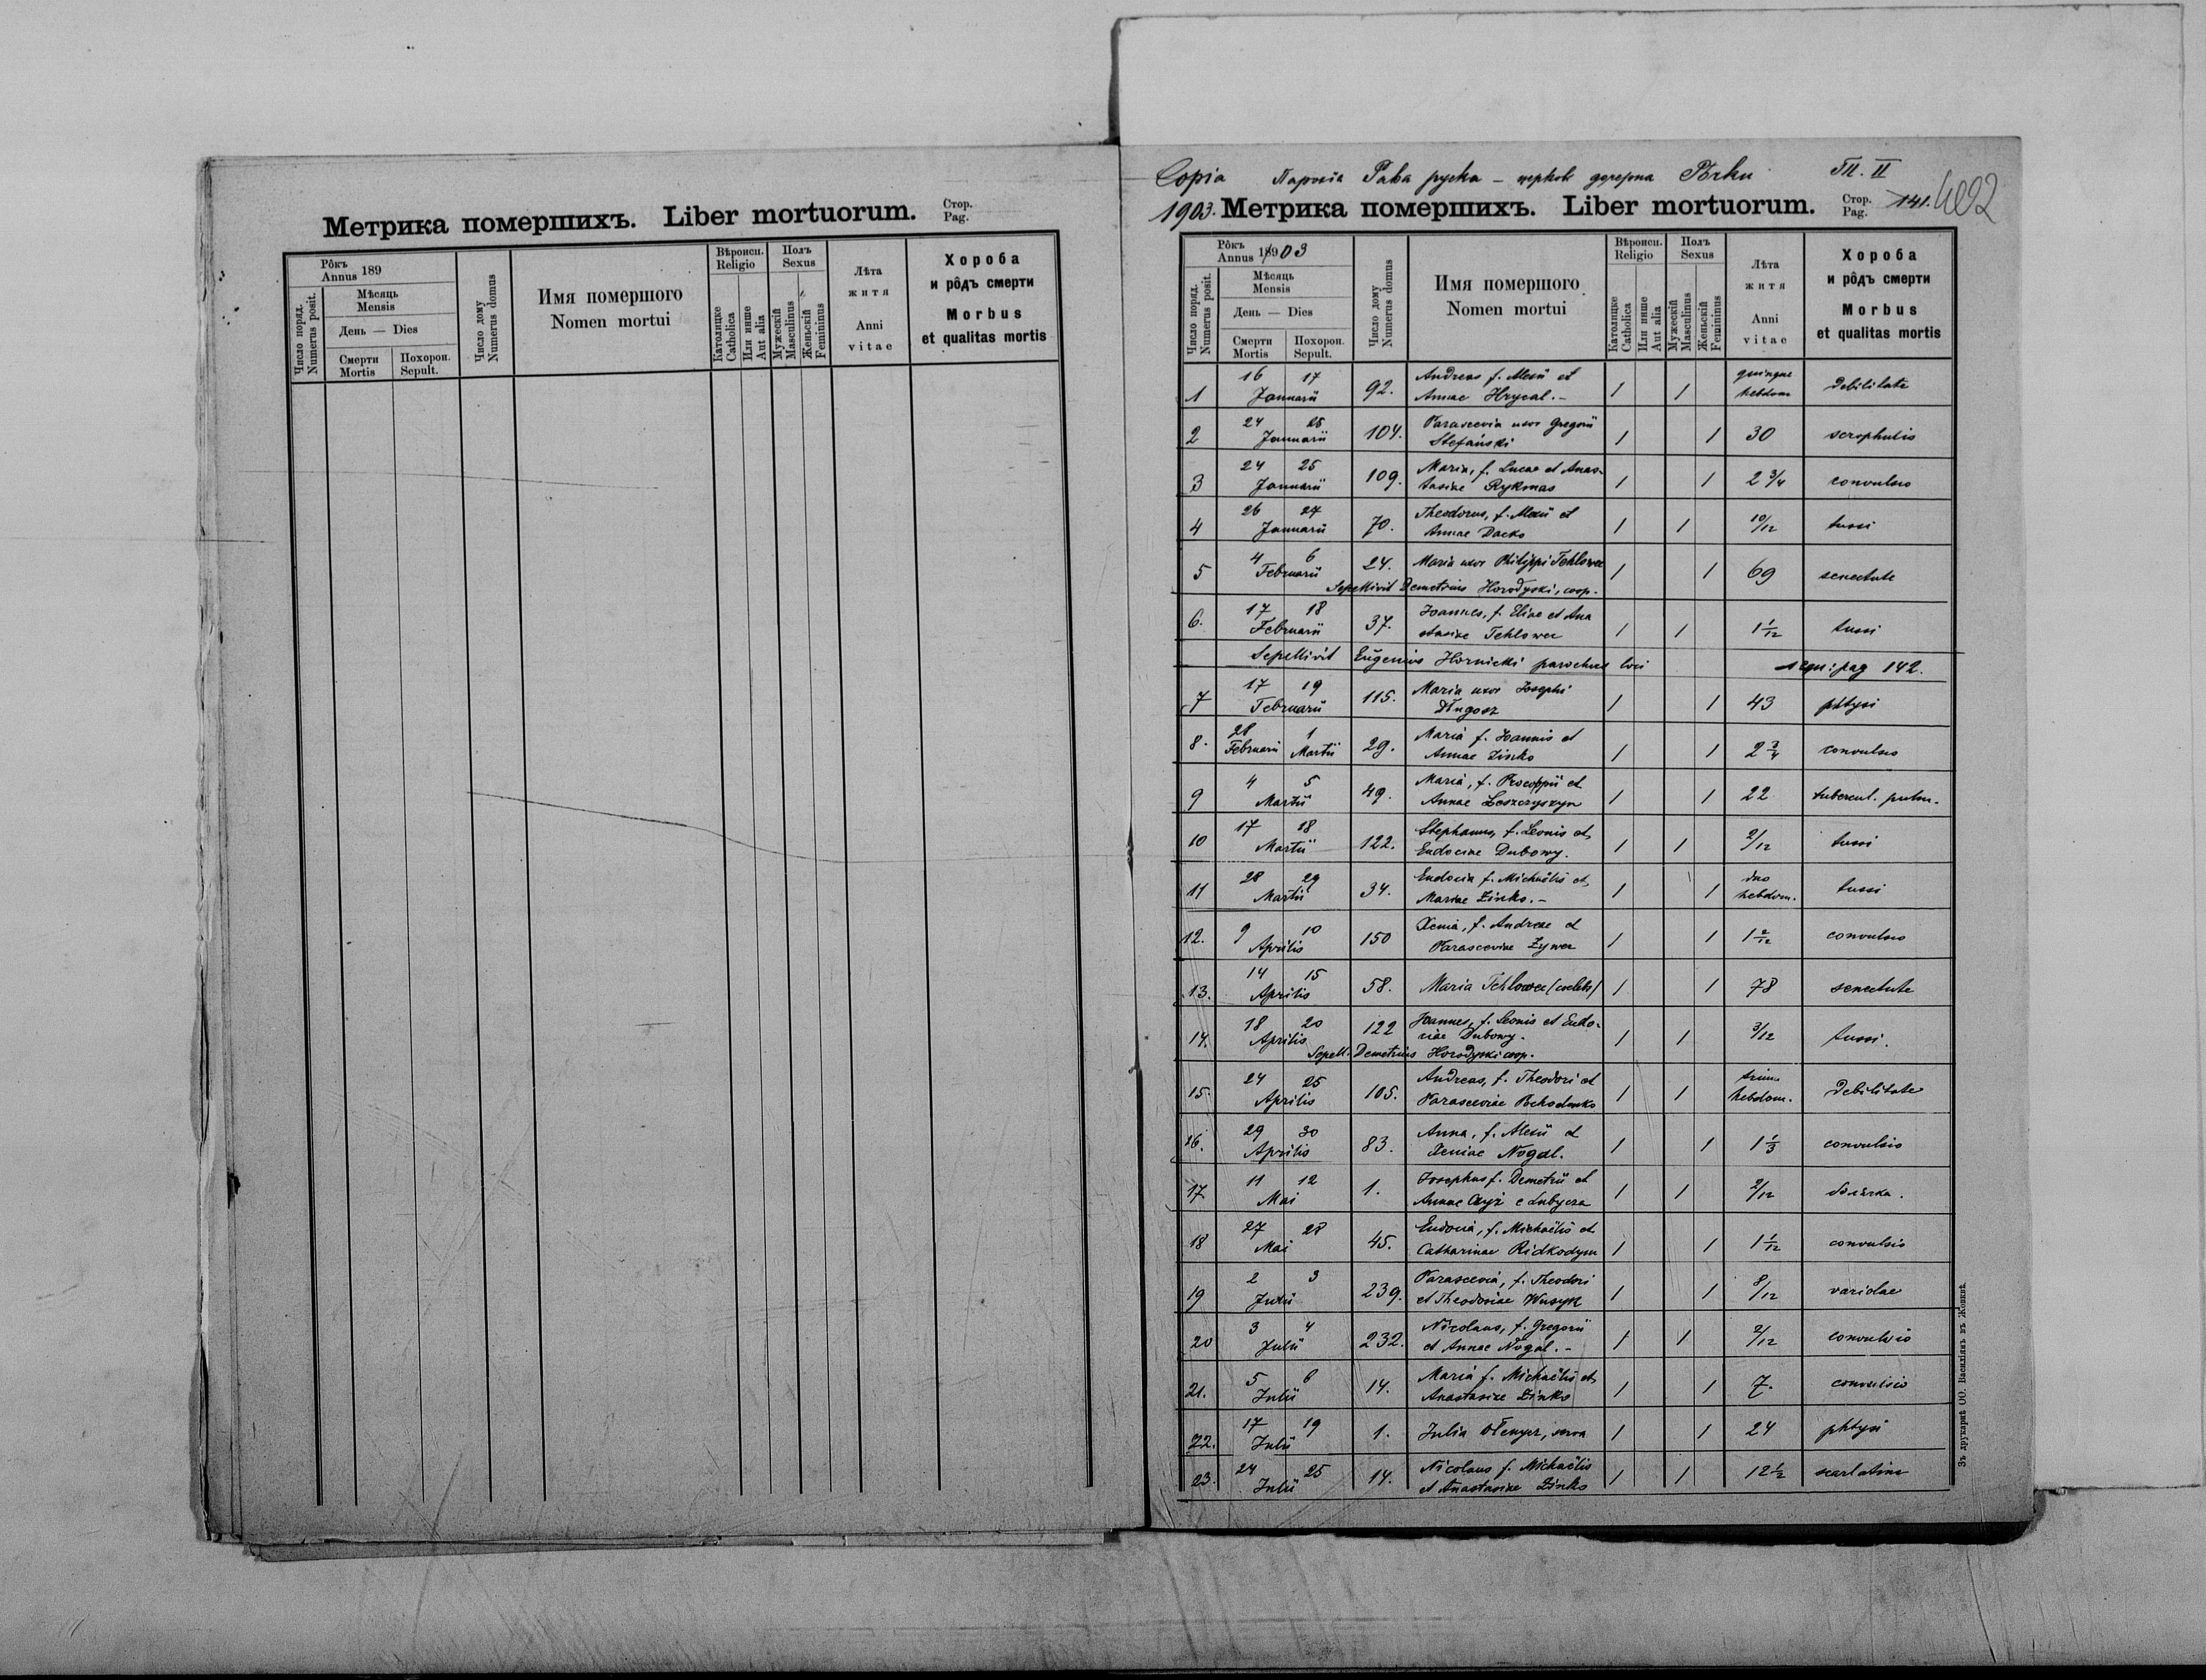 Метрика помершихъ. Liber mortuorum. Стор. Pag.
Рôкъ Annus 189
Мѣсяць Mensis
День — Dies
Число поряд. Numerus posit.
Смерти Mortis
Похорон. Sepult.
Число дому Numerus domus
Имя помершого Nomen mortui
Вѣроисп. Religio
Католицке Catholica
Или инше Aut alia
Полъ Sexus
Мужескій Masculinus
Женьскій Femininus
Лѣта житя Anni vitae
Хороба и рôдъ смерти Morbus et qualitas mortis
Copia Парохія Рава руска — церковь дочерна Рѣчки Т. II
1903. Метрика помершихъ. Liber mortuorum. Стор. Pag. 141. 402
Рôкъ Annus 1903
Мѣсяць Mensis
День — Dies
Число поряд. Numerus posit.
Смерти Mortis
Похорон. Sepult.
Число дому Numerus domus
Имя помершого Nomen mortui
Вѣроисп. Religio
Католицке Catholica
Или инше Aut alia
Полъ Sexus
Мужескій Masculinus
Женьскій Femininus
Лѣта житя Anni vitae
Хороба и рôдъ смерти Morbus et qualitas mortis
1 16 17 Januarii 92. Andreas f. Alexii et Annae Hrycal.- / / quinque hebdom debilitate
2 24 25 Januarii 104. Parascevia uxor Gregorii Stefański / / 30 scrophulis
3 24 25 Januarii 109. Maria, f. Lucae et Anastasiae Rykmas / / 2 3/4 convulsio
4 26 27 Januarii 70. Theodorus, f. Alexii et Annae Dacko / / 10/12 tussi
5 4 6 Februarii 24. Maria uxor Philippi Tehlowec / / 69 senectute
Sepellivit Demetrius Horodyski, coop.
6. 17 18 Februarii 37. Joannes, f. Eliae et Anastasiae Tehlowec / / 1 1/12 tussi
Sepellivit Eugenius Hornicki parochus loci sequ: pag 142.
7 17 19 Februarii 115. Maria uxor Josephi Długosz / / 43 phtysi
8. 28 Februarii 1 Martii 29. Maria f. Joannis et Annae Zinko / / 2 3/4 convulsio
9 4 5 Martii 49. Maria, f. Procopii et Annae Leszczyszyn / / 22 tubercul. pulm.
10 17 18 Martii 122. Stephanus, f. Leonis et Eudociae Dubowy. / / 2/12 tussi
11 28 29 Martii 34. Eudocia f. Michaëlis et Mariae Zinko.- / / duo hebdom. tussi
12. 9 10 Aprilis 150 Xenia, f. Andreae et Parasceviae Zywer / / 1 2/12 convulsio
13. 14 15 Aprilis 58. Maria Tehlowec (coelebs) / / 78 senectute
14. 18 20 Aprilis 122 Joannes, f. Leonis et Eudociae Dubowy. / / 3/12 tussi.
Sepell. Demetrius Horodyski coop.
15. 24 25 Aprilis 105. Andreas, f. Theodori et Parasceviae / / trium hebdom. debilitate
16. 29 30 Aprilis 83. Anna, f. Alexii et Xeniae Nogal. / / 1 1/3 convulsio
17 11 12 Mai 1. Josephus f. Demetrii et Annae e Lubycza / / 2/12
18 27 28 Mai 45. Eudocia, f. Michaëlis et Catharinae Ridkodym / / 1 1/12 convulsio
19 2 3 Julii 239. Parascevia, f. Theodori et Theodosiae Wusyk / / 8/12 variolae
20 3 4 Julii 232. Nicolaus, f. Gregorii et Annae Nogal.- / / 2/12 convulsio
21. 5 6 Julii 14. Maria f. Michaëlis et Anastasiae Zinko / / 7. convulsio
22. 17 19 Julii 1. Julia serva / / 24 phtysi
23. 24 25 Julii 14. Nicolaus f. Michaëlis et Anastasiae Zinko / / 12 1/2 scarlatina
Зъ друкарнѣ ОО. Василіянъ въ Жовквѣ.